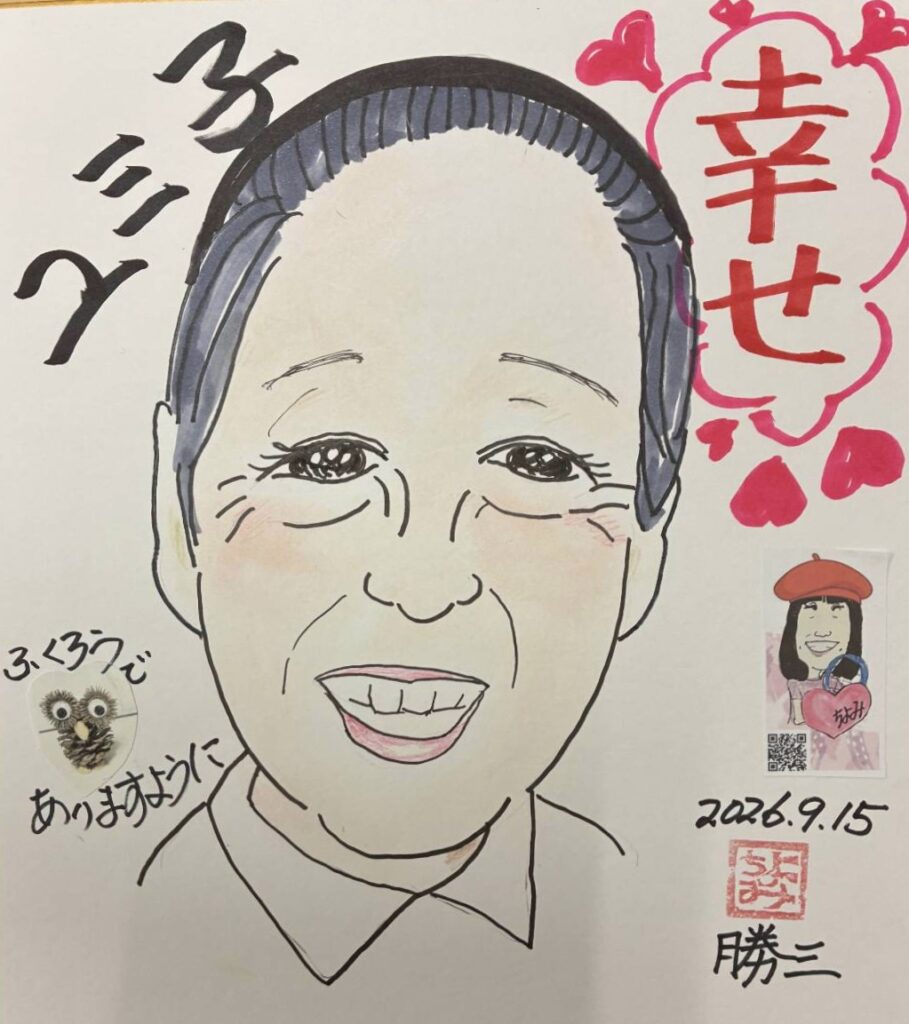 幸せ
ふくろうで
ありますように
ちよみ
2026.9.15
ちよみ
勝三